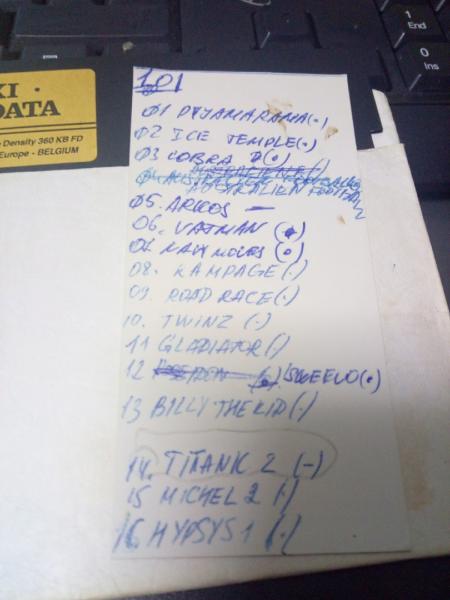 XI •
DATA
e Density 360 KB FD
Europe - BELGIUM
1
End
0
Ins
101
01 PYJAMARAMA(.)
02 ICE TEMPLE(.)
03 COBRA (0)
AUSTRALIEN FOOTBALL
05. ARKOS -
06. VATMAN (.)
07 NAVY MOVES (0)
08. RAMPAGE (.)
09. ROAD RACE (.)
10. TWINZ (.)
11 GLADIATOR (.)
12 SKEEVO (.)
13 BILLY THE KID (.)
14. TITANIC 2 (-)
15 MICHEL 2 (.)
16. HYPSYS 1 (.)